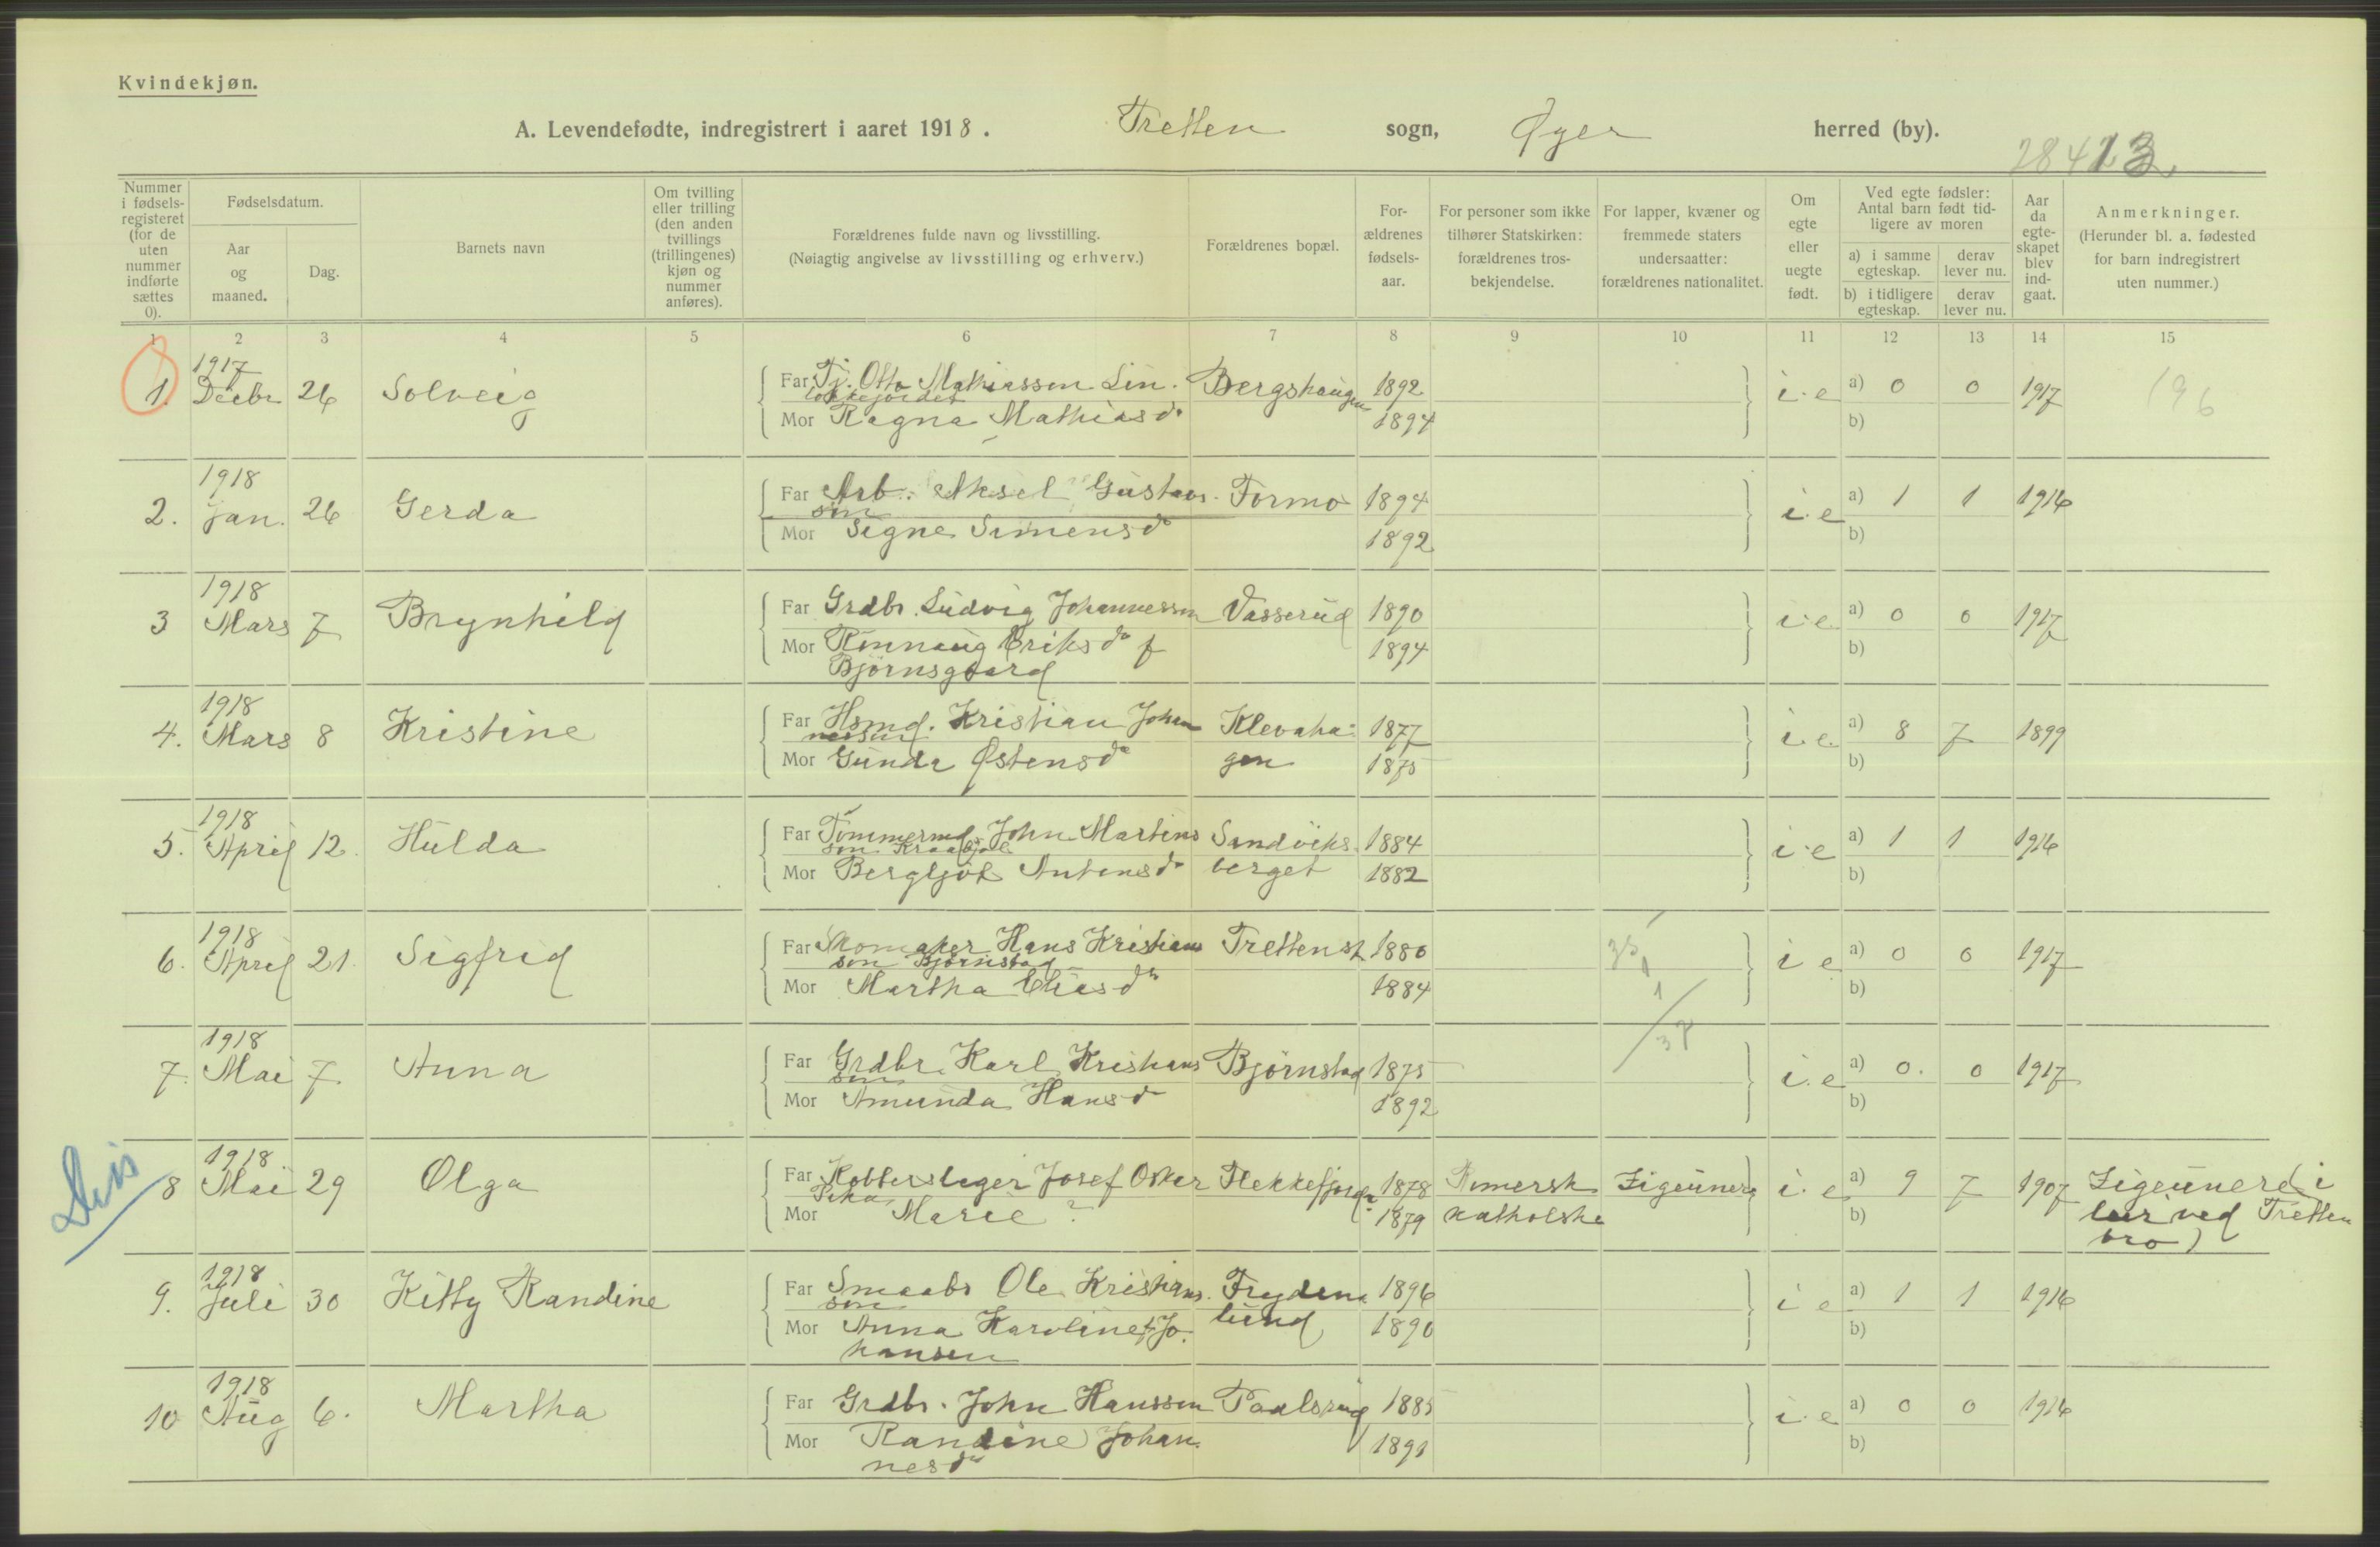 Kvindekjøn.
A. Levendefødte, indregistrert i aaret 1918. Tretten sogn, Øyer herred (by).
Nummer i fødsels-registeret (for de uten nummer indførte sættes 0).
Fødselsdatum.
Aar og maaned.
Dag.
Barnets navn
Om tvilling eller trilling (den anden tvillings (trillingenes) kjøn og nummer anføres).
Forældrenes fulde navn og livsstilling.
(Nøiagtig angivelse av livsstilling og erhverv.)
Forældrenes bopæl.
For-ældrenes fødsels-aar.
For personer som ikke tilhører Statskirken: forældrenes tros-bekjendelse.
For lapper, kvæner og fremmede staters undersaatter: forældrenes nationalitet.
Om egte eller uegte født.
Ved egte fødsler: Antal barn født tid-ligere av moren
a) i samme egteskap.
derav lever nu.
b) i tidligere egteskap.
derav lever nu.
Aar da egte-skapet blev ind-gaat.
Anmerkninger.
(Herunder bl. a. fødested for barn indregistrert uten nummer.)
1 2 3 4 5 6 7 8 9 10 11 12 13 14 15
1917
1. Decbr 26 Solveig Far Tj. Otto Mathiassen Bergshaugen 1892 i.e a) 0 0 1917 196
Mor Ragna Mathiasdr 1894 b)
1918
2. Jan. 26 Gerda Far Arb. Aksel Gustavs- Formo 1894 i.e a) 1 1 1916
søn
Mor Signe Simensdr 1892 b)
1918
3 Mars 7 Brynhild Far Grdbr. Ludvig Johannessen Vasserud 1890 i.e. a) 0 0 1917
Mor Rønnaug Eriksdr f 1894 b)
Bjørnsgaard
1918
4. Mars 8 Kristine Far Hsmd. Kristian Johan Klevaha- 1877 i.e. a) 8 7 1899
nessen
Mor Gunda Østensdr gen 1875 b)
1918
5. April 12. Hulda Far Tømmermd. John Martins Sandviks- 1884 i.e a) 1 1 1916
søn
Mor Bergljot Antonsdr berget 1882 b)
1918
6. April 21. Sigfrid Far Skomaker Hans Kristians Tretten st 1880 i e a) 0 0 1917
søn Bjørnstad
Mor Martha Eliasdr 1884 b)
1918
7. Mai 7 Anna Far Grdbr. Karl Kristians Bjørnstad 1875 i.e a) 0. 0 1917
søn
Mor Amunda Hansdr 1892 b)
1918
8 Mai 29 Olga Far Kobberslager Josef Oskar Flekkefjord 1878 Romersk Zigeunere i.e a) 9 7 1907 Zigeunere (i
Mor Marie ? 1879 katholske b) leir ved Tretten
bro)
1918
9. Juli 30 Kitty Randine Far Smaabr Ole Kristians- Fryden- 1896 i e a) 1 1 1916
søn
Mor Anna Karoline f. Jo- lund 1890 b)
hansen
1918
10 Aug 6. Martha Far Grdbr. John Hanssen Paalsrud 1885 i.e a) 0 0 1916
Mor Randine Johan- 1891 b)
nesdr